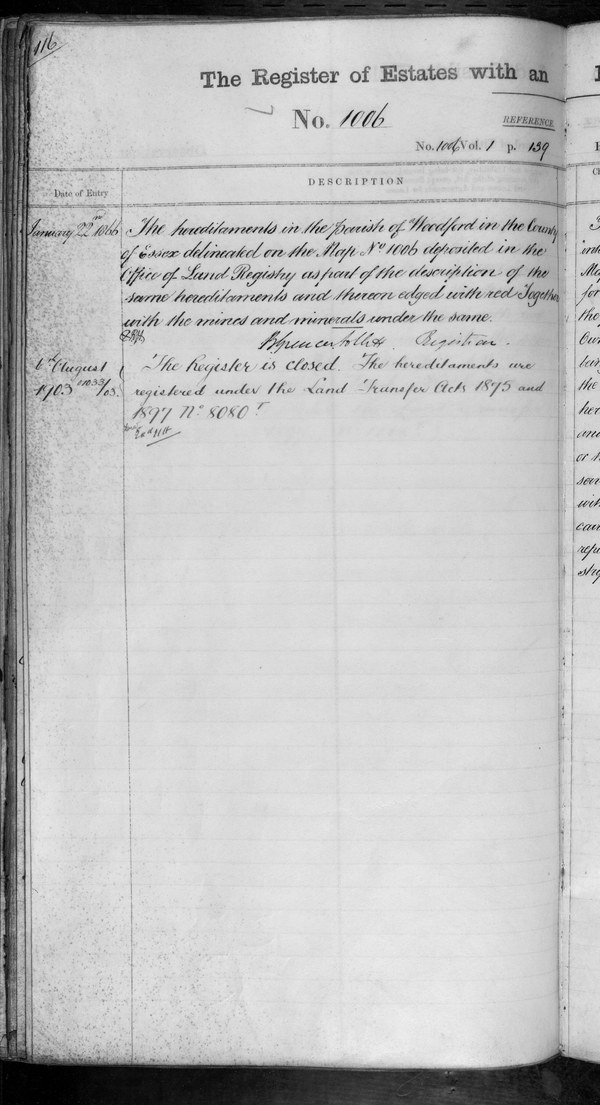 116
The Register of Estates with an
No. 1006
REFERENCE.
No. 1006 Vol. 1 p. 159
Date of Entry
DESCRIPTION
January 22nd 1866
The hereditaments in the Parish of Woodford in the County
of Essex delineated on the Map No 1006 deposited in the
Office of Land Registry as part of the description of the
same hereditaments and thereon edged with red Together
with the mines and minerals under the same.
Registrar.
6th August
1903
The Register is closed. The hereditaments are
registered under the Land Transfer Acts 1875 and
1897 No 8080